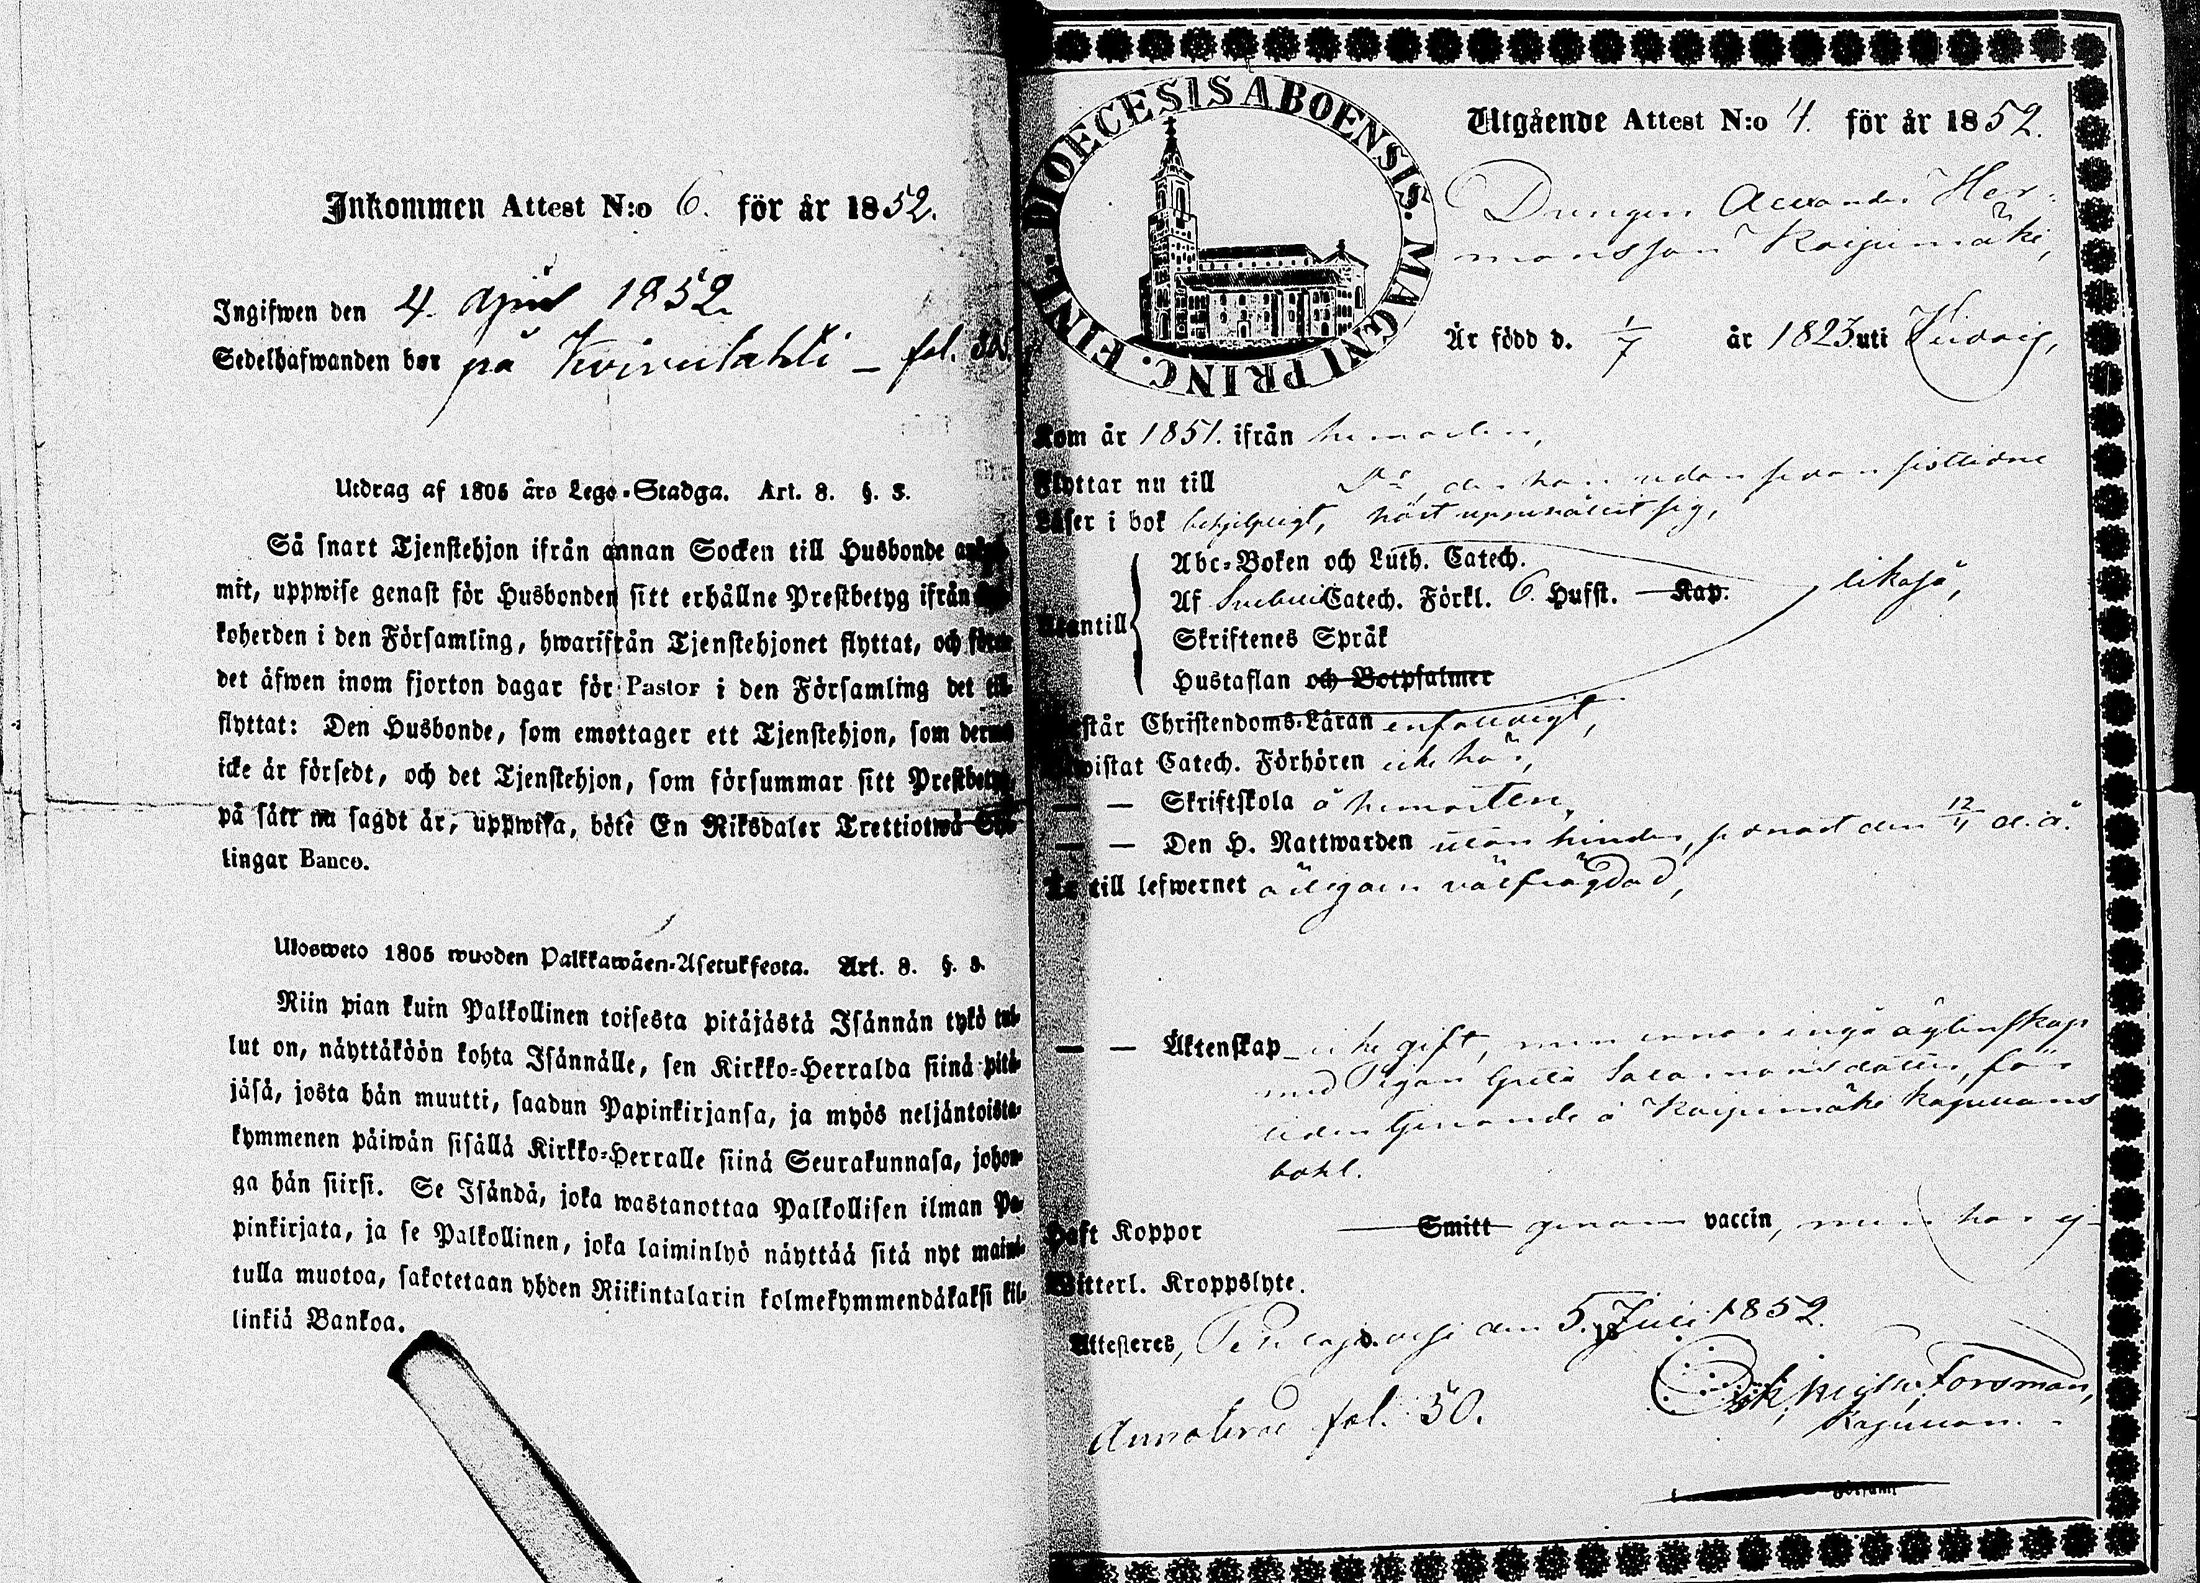 Inkommen Attest N:o 6. för år 1852.
Ingifwen den 4. April 1852
Sedelhafwanden bor på Koivulahti – fol.
Utdrag af 1805 års Lego-Stadga. Art. 8. §. 3.
Så snart Tjenstehjon ifrån annan Socken till Husbonde
mit, uppwise genast för Husbonden sitt erhållne Prestbetyg ifrån
koherden i den Församling, hwarifrån Tjenstehjonet flyttat, och
det äfwen inom fjorton dagar för Pastor i den Församling det till-
flyttat: Den Husbonde, som emottager ett Tjenstehjon, som dermed
icke är försedt, och det Tjenstehjon, som försummar sitt Prestbetyg,
på sätt nu sagdt är, uppwisa, böte En Riksdaler Trettiotwå Skil-
lingar Banco.
Ulosweto 1805 wuoden Palkkawäen-Asetuksesta. Art. 8. §. 3.
Niin pian kuin Palkollinen toisesta pitäjästä Isännän tykö tul-
lut on, näyttäköön kohta Isännälle, sen Kirkko-Herralda siinä pitä-
jäsä, josta hän muutti, saadun Papinkirjansa, ja myös neljäntoista-
kymmenen päiwän sisällä Kirkko-Herralle siinä Seurakunnasa, johon-
ga hän siirsi. Se Isändä, joka wastanottaa Palkollisen ilman Pa-
pinkirjata, ja se Palkollinen, joka laiminlyö näyttää sitä nyt maini-
tulla muotoa, sakotetaan yhden Riikintalarin kolmekymmendäkaksi kil-
linkiä Bankoa.
DIOECESIS ABOENSIS. MAGNI PRINC. FINL.
Utgående Attest N:o 4. för år 1852.
Drengen Alexander Her-
mansson Kaipimäki,
Är född d. 1/7 år 1823 uti
Kom år 1851. ifrån hemorten,
Flyttar nu till D:o, der han redan sedan
Läser i bok behjelpligt, uppehållit sig,
Utantill
Abc-Boken och Luth. Catech.
Af Svebelii Catech. Förkl. 6. Hufst. Kap.
likaså,
Skriftenes Språk
Hustaflan och Botpsalmer
Förstår Christendoms-Läran enfaldigt,
Bewistat Catech. Förhören icke här,
— — Skriftskola å hemorten,
— — Den H. Nattwarden utan hinder, senast den 12/4 d. å.
Är till lefwernet välfrägdad,
— — Äktenskap icke gift, men ingå äktenskap
med Pigan Greta Salomonsdotter, för
tiden tjenande å Kaipimäki Kapellans
bohl.
Haft Koppor Smitt genom vaccin, men har ej
Witterl. Kroppslyte.
Attesteres, den 5. Juli 1852.
Forsman,
Kapellan.
fol. 50.